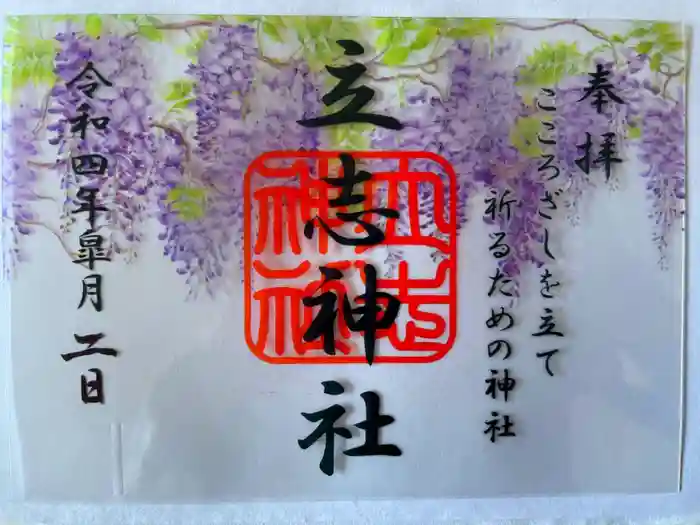 奉拝
こころざしを立て
祈るための神社
立志神社
立志神社
令和四年皐月二日